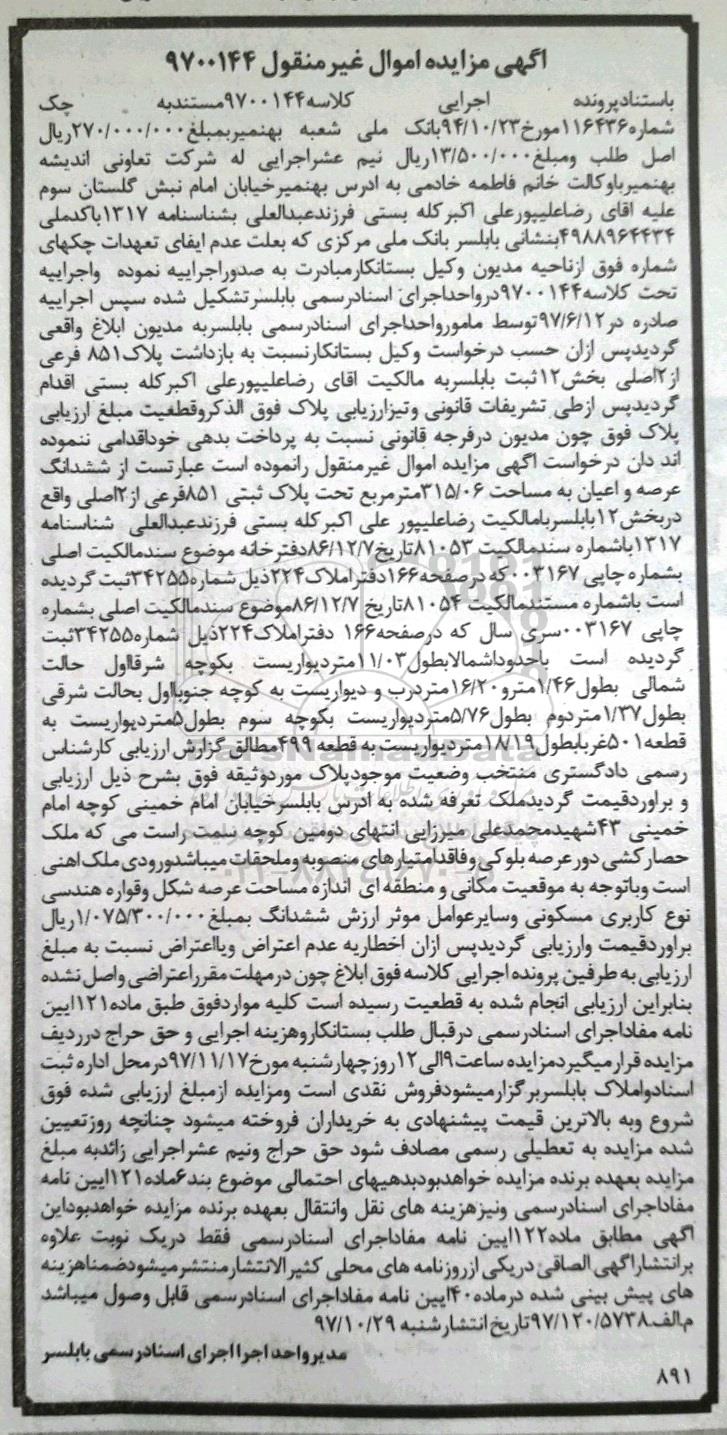 اگهی مزایده اموال غیرمنقول ۹۷۰۰۱۴۴
باستنادپرونده اجرایی کلاسه۹۷۰۰۱۴۴مستندبه چک
شماره۱۱۶۴۳۶مورخ۹۴/۱۰/۲۳بانک ملی شعبه بهنمیربمبلغ۲۷۰/۰۰۰/۰۰۰ریال
اصل طلب ومبلغ۱۳/۵۰۰/۰۰۰ریال نیم عشراجرایی له شرکت تعاونی اندیشه
بهنمیرباوکالت خانم فاطمه خادمی به ادرس بهنمیرخیابان امام نبش گلستان سوم
علیه اقای رضاعلیپورعلی اکبرکله بستی فرزندعبدالعلی بشناسنامه ۱۳۱۷باکدملی
۴۹۸۸۹۶۴۴۳۴بنشانی بابلسر بانک ملی مرکزی که بعلت عدم ایفای تعهدات چکهای
شماره فوق ازناحیه مدیون وکیل بستانکارمبادرت به صدوراجراییه نموده واجراییه
تحت کلاسه۹۷۰۰۱۴۴درواحداجرای اسنادرسمی بابلسرتشکیل شده سپس اجراییه
صادره در۹۷/۶/۱۲توسط مامورواحداجرای اسنادرسمی بابلسربه مدیون ابلاغ واقعی
گردیدپس ازان حسب درخواست وکیل بستانکارنسبت به بازداشت پلاک۸۵۱ فرعی
از۲اصلی بخش۱۲ثبت بابلسربه مالکیت اقای رضاعلیپورعلی اکبرکله بستی اقدام
گردیدپس ازطی تشریفات قانونی وتیزارزیابی پلاک فوق الذکروقطعیت مبلغ ارزیابی
پلاک فوق چون مدیون درفرجه قانونی نسبت به پرداخت بدهی خوداقدامی ننموده
اند دان درخواست اگهی مزایده اموال غیرمنقول رانموده است عبارتست از ششدانگ
عرصه و اعیان به مساحت ۳۱۵/۰۶مترمربع تحت پلاک ثبتی ۸۵۱فرعی از۲اصلی واقع
دربخش۱۲بابلسربامالکیت رضاعلیپور علی اکبرکله بستی فرزندعبدالعلی شناسنامه
۱۳۱۷باشماره سندمالکیت ۸۱۰۵۳تاریخ۸۶/۱۲/۷دفترخانه موضوع سندمالکیت اصلی
بشماره چاپی ۰۰۳۱۶۷که درصفحه۱۶۶دفتراملاک۲۲۴ذیل شماره۳۴۲۵۵ثبت گردیده
است باشماره مستندمالکیت ۸۱۰۵۴تاریخ ۸۶/۱۲/۷موضوع سندمالکیت اصلی بشماره
چاپی ۰۰۳۱۶۷سری سال که درصفحه۱۶۶ دفتراملاک۲۲۴ذیل شماره۳۴۲۵۵ثبت
گردیده است باحدوداشمالابطول۱۱/۰۳متردیواریست بکوچه شرقااول حالت
شمالی بطول۱/۴۶مترو۱۶/۲۰متردرب و دیواریست به کوچه جنوبااول بحالت شرقی
بطول۱/۳۷متردوم بطول۵/۷۶متردیواریست بکوچه سوم بطول۵متردیواریست به
قطعه۵۰۱غربابطول۱۸/۱۹متردیواریست به قطعه ۴۹۹مطالق گزارش ارزیابی کارشناس
رسمی دادگستری منتخب وضعیت موجودپلاک موردوثیقه فوق بشرح ذیل ارزیابی
و براوردقیمت گردیدملک تعرفه شده به ادرس بابلسرخیابان امام خمینی کوچه امام
خمینی ۴۳شهیدمحمدعلی میرزایی انتهای دومین کوچه سمت راست می که ملک
حصارکشی دورعرصه بلوکی وفاقدامتیارهای منصوبه وملحقات میباشدورودی ملک اهنی
است وباتوجه به موقعیت مکانی و منطقه ای اندازه مساحت عرصه شکل وقواره هندسی
نوع کاربری مسکونی وسایرعوامل موثر ارزش ششدانگ بمبلغ۱/۰۷۵/۳۰۰/۰۰۰ریال
براوردقیمت وارزیابی گردیدپس ازان اخطاریه عدم اعتراض ویااعتراض نسبت به مبلغ
ارزیابی به طرفین پرونده اجرایی کلاسه فوق ابلاغ چون درمهلت مقرراعتراضی واصل نشده
بنابراین ارزیابی انجام شده به قطعیت رسیده است کلیه مواردفوق طبق ماده۱۲۱ایین
نامه مفاداجرای اسنادرسمی درقبال طلب بستانکاروهزینه اجرایی و حق حراج درردیف
مزایده قرارمیگیردمزایده ساعت۹الی۱۲روزچهارشنبه مورخ۹۷/۱۱/۱۷درمحل اداره ثبت
اسنادواملاک بابلسربرگزارمیشودفروش نقدی است ومزایده ازمبلغ ارزیابی شده فوق
شروع وبه بالاترین قیمت پیشنهادی به خریداران فروخته میشود چنانچه روزتعیین
شده مزایده به تعطیلی رسمی مصادف شود حق حراج ونیم عشراجرایی زائدبه مبلغ
مزایده بعهده برنده مزایده خواهدبودبدهیهای احتمالی موضوع بند۶ماده۱۲۱ایین نامه
مفاداجرای اسنادرسمی ونیزهزینه های نقل وانتقال بعهده برنده مزایده خواهدبوداین
اگهی مطابق ماده۱۲۲ایین نامه مفاداجرای اسنادرسمی فقط دریک نوبت علاوه
برانتشاراگهی الصاقی دریکی ازروزنامه های محلی کثیرالانتشارمنتشرمیشودضمناهزینه
های پیش بینی شده درماده۴۰ایین نامه مفاداجرای اسنادرسمی قابل وصول میباشد
م.الف.۹۷/۱۲۰/۵۷۳۸تاریخ انتشارشنبه ۹۷/۱۰/۲۹
مدیرواحد اجرا اجرای اسنادرسمی بابلسر
۸۹۱